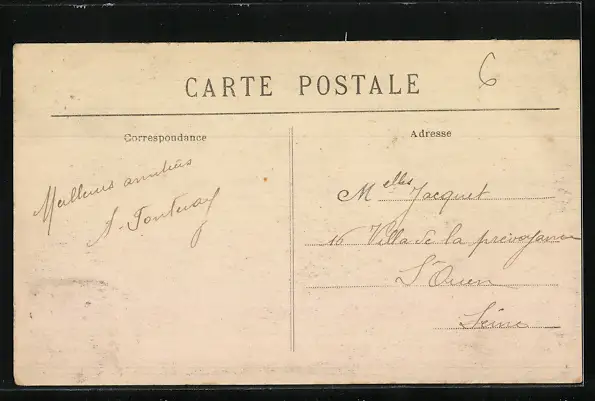 CARTE POSTALE
6
Correspondance
Meilleures amitiés
A. Fontenay
Adresse
Melles Jacquet
16 Villa de la prévoyance
St Ouen
Seine